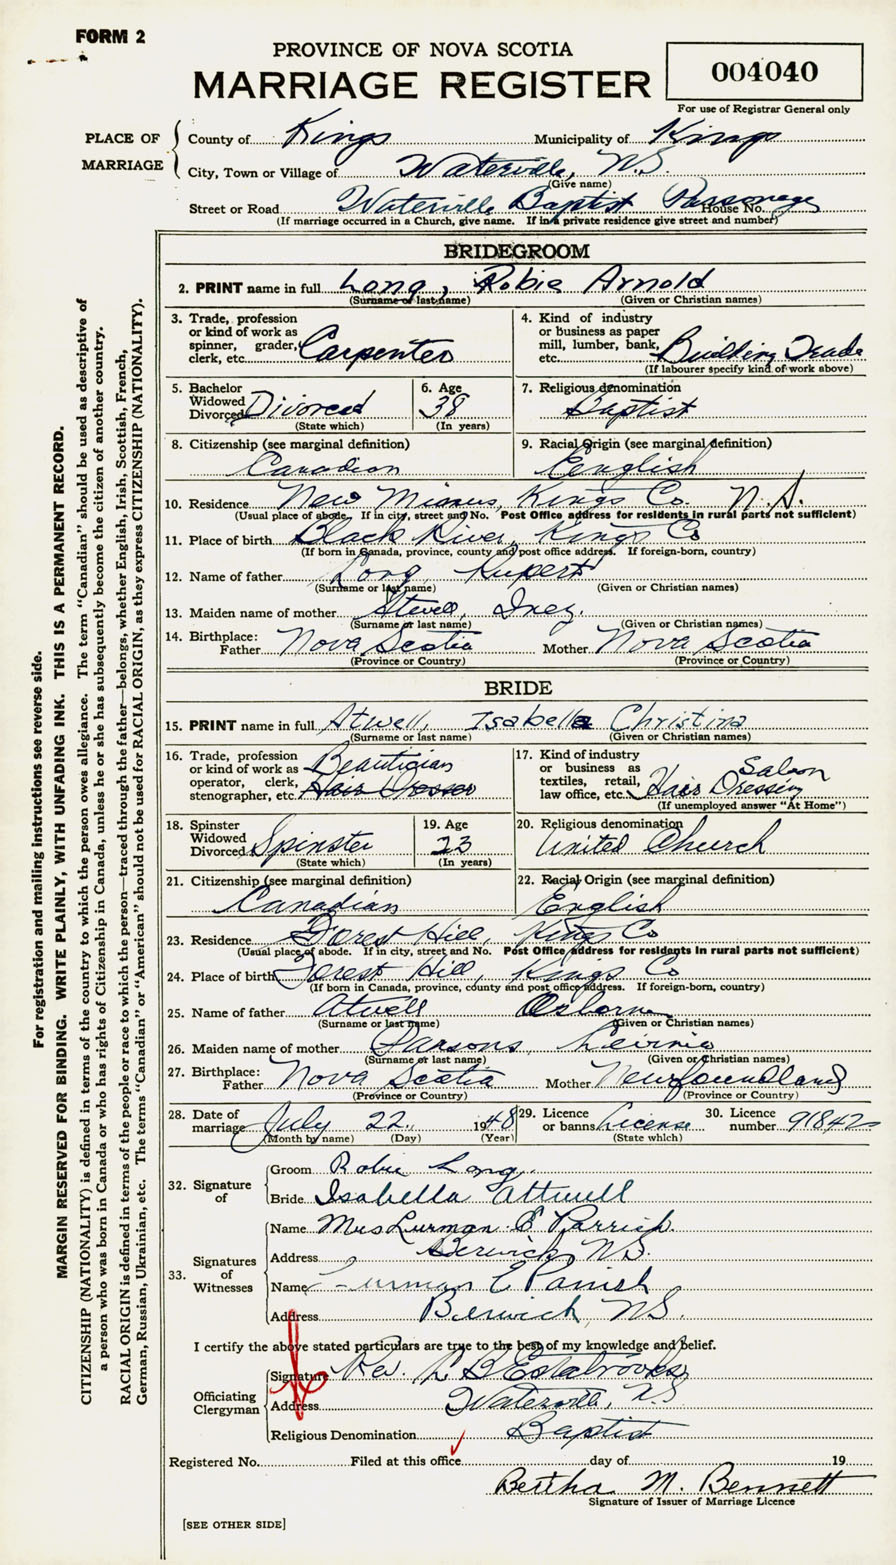 FORM 2
PROVINCE OF NOVA SCOTIA
MARRIAGE REGISTER
004040
For use of Registrar General only
PLACE OF MARRIAGE
County of Kings Municipality of Kings
City, Town or Village of Waterville, N.S.
(Give name)
Street or Road Waterville Baptist Parsonage House No.
(If marriage occurred in a Church, give name. If in a private residence give street and number)
BRIDEGROOM
2. PRINT name in full Long, Robie Arnold
(Surname or last name) (Given or Christian names)
3. Trade, profession or kind of work as spinner, grader, clerk, etc. Carpenter
4. Kind of industry or business as paper mill, lumber, bank, etc. Building Trade
(If labourer specify kind of work above)
5. Bachelor Widowed Divorced Divorced
(State which)
6. Age 38
(In years)
7. Religious denomination
Baptist
8. Citizenship (see marginal definition)
Canadian
9. Racial Origin (see marginal definition)
English
10. Residence New Minus, Kings Co. N.S.
(Usual place of abode. If in city, street and No. Post Office address for residents in rural parts not sufficient)
11. Place of birth Black River, Kings Co
(If born in Canada, province, county and post office address. If foreign-born, country)
12. Name of father Long, Rupert
(Surname or last name) (Given or Christian names)
13. Maiden name of mother Atwell, Inez.
(Surname or last name) (Given or Christian names)
14. Birthplace: Father Nova Scotia Mother Nova Scotia
(Province or Country) (Province or Country)
BRIDE
15. PRINT name in full Atwell, Isabella Christina
(Surname or last name) (Given or Christian names)
16. Trade, profession or kind of work as operator, clerk, stenographer, etc. Beautician Hair Dresser
17. Kind of industry or business as textiles, retail, law office, etc. Hair Dressing Saloon
(If unemployed answer "At Home")
18. Spinster Widowed Divorced Spinster
(State which)
19. Age 23
(In years)
20. Religious denomination
United Church
21. Citizenship (see marginal definition)
Canadian
22. Racial Origin (see marginal definition)
English
23. Residence Forest Hill, Kings Co
(Usual place of abode. If in city, street and No. Post Office address for residents in rural parts not sufficient)
24. Place of birth Forest Hill, Kings Co
(If born in Canada, province, county and post office address. If foreign-born, country)
25. Name of father Atwell Osborne
(Surname or last name) (Given or Christian names)
26. Maiden name of mother Parsons, Levinia
(Surname or last name) (Given or Christian names)
27. Birthplace: Father Nova Scotia Mother Newfoundland
(Province or Country) (Province or Country)
28. Date of marriage July 22, 1948
(Month by name) (Day) (Year)
29. Licence or banns License
(State which)
30. Licence number 91842
32. Signature of
Groom Robie Long.
Bride Isabella Attwell
33. Signatures of Witnesses
Name Mrs Lurman E Parrish.
Address Berwick, N.S.
Name Lurman E Parrish
Address Berwick, N.S.
I certify the above stated particulars are true to the best of my knowledge and belief.
Officiating Clergyman
Signature Rev. Estabrooks
Address Waterville, N.S
Religious Denomination Baptist
Registered No. Filed at this office day of 19
Bertha M. Bennett
Signature of Issuer of Marriage Licence
[SEE OTHER SIDE]
For registration and mailing instructions see reverse side.
MARGIN RESERVED FOR BINDING. WRITE PLAINLY, WITH UNFADING INK. THIS IS A PERMANENT RECORD.
CITIZENSHIP (NATIONALITY) is defined in terms of the country to which the person owes allegiance. The term "Canadian" should be used as descriptive of
a person who was born in Canada or who has rights of Citizenship in Canada, unless he or she has subsequently become the citizen of another country.
RACIAL ORIGIN is defined in terms of the people or race to which the person—traced through the father—belongs, whether English, Irish, Scottish, French,
German, Russian, Ukrainian, etc. The terms "Canadian" or "American" should not be used for RACIAL ORIGIN, as they express CITIZENSHIP (NATIONALITY).